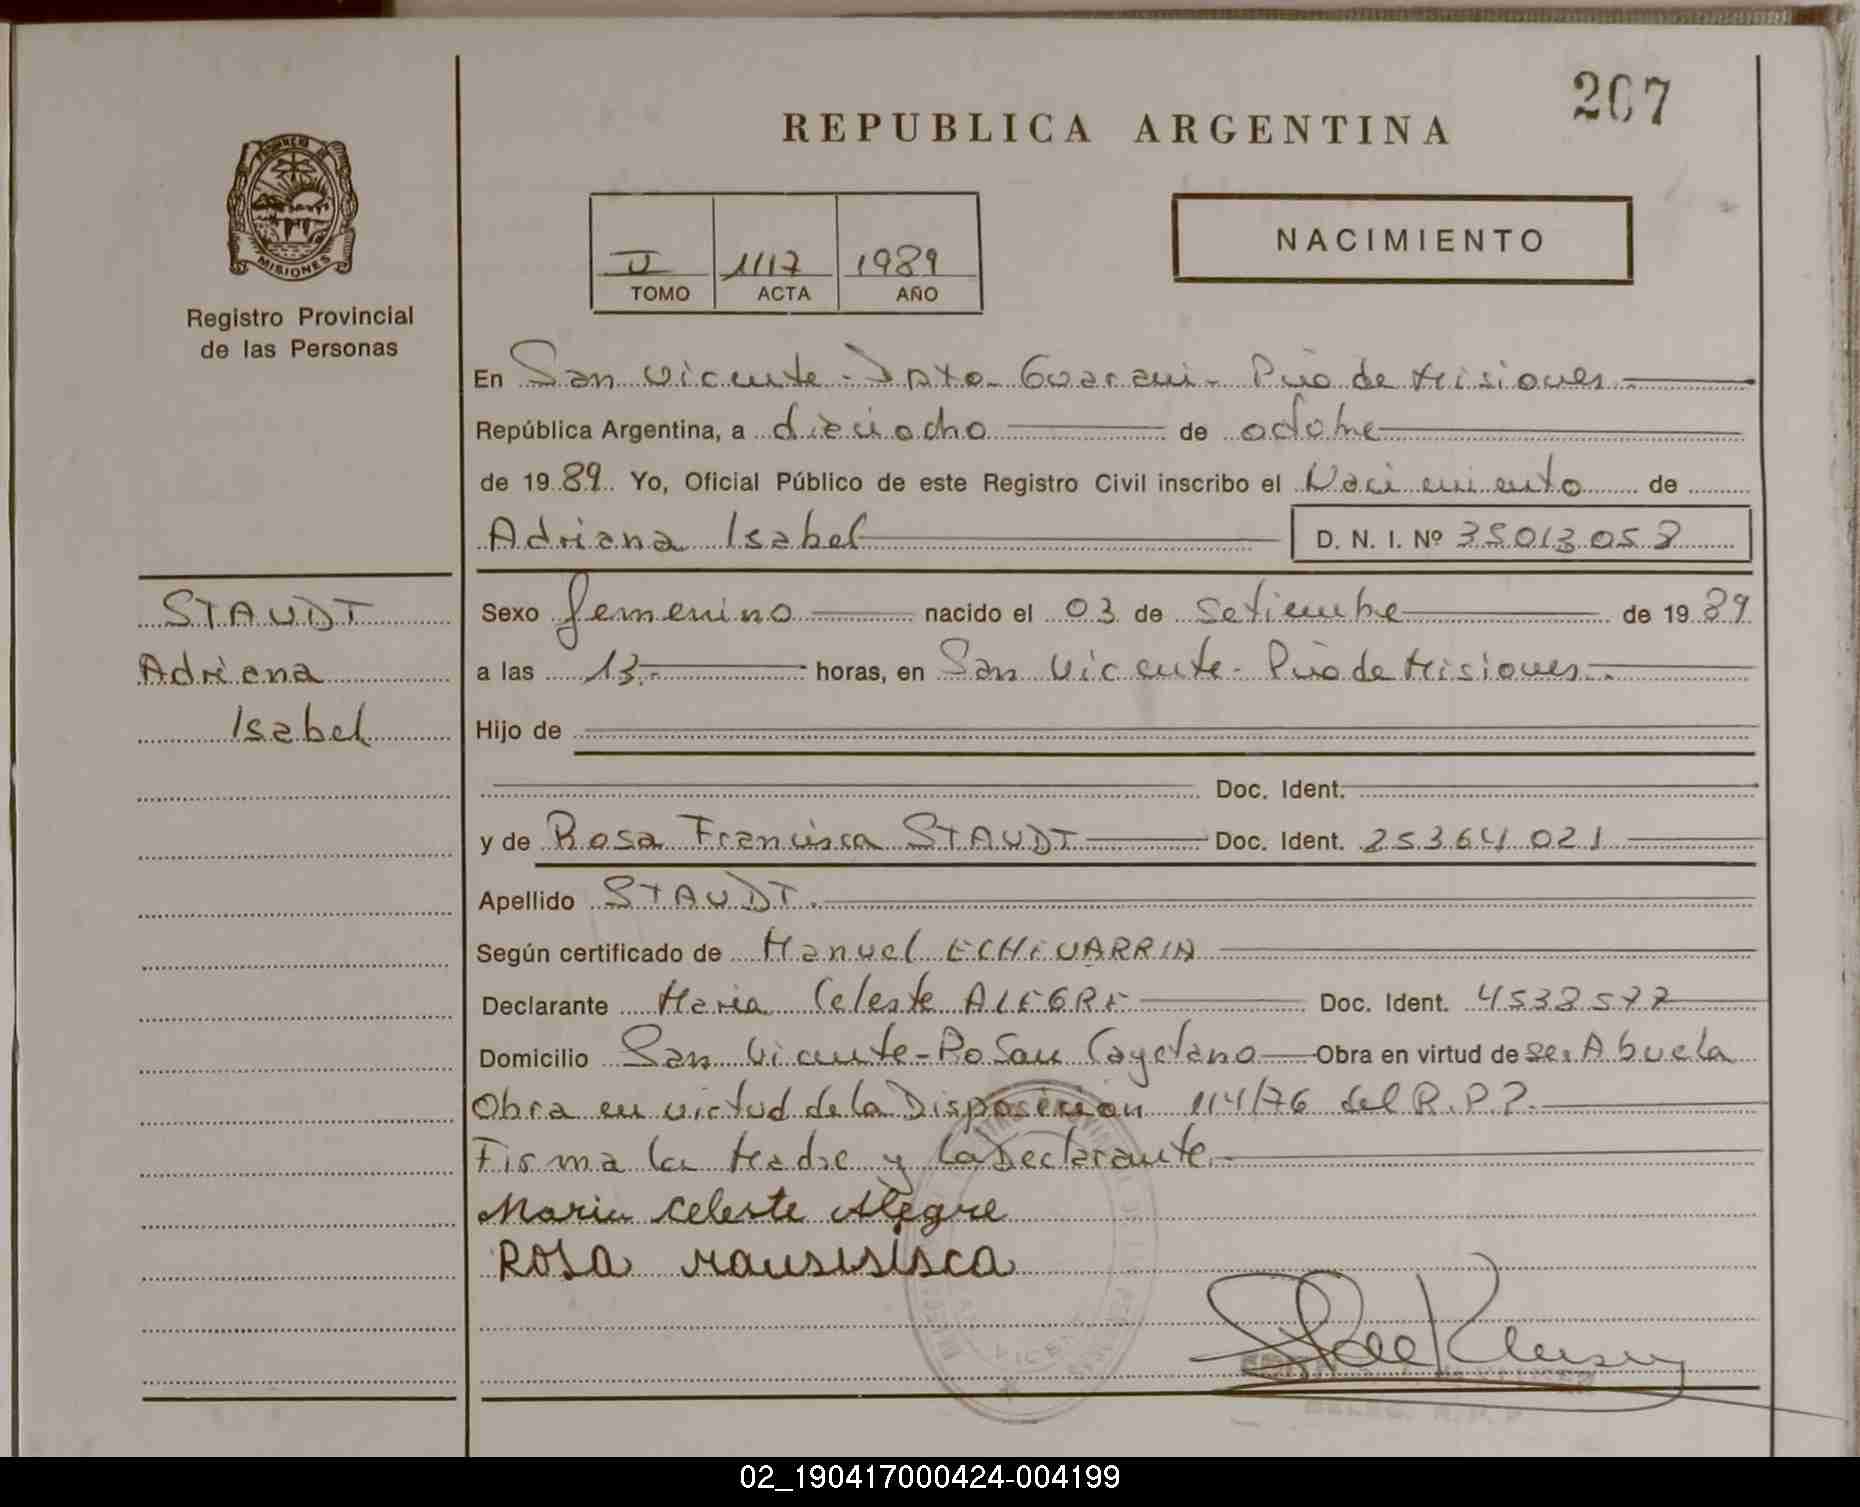 207
REPUBLICA ARGENTINA
PROVINCIA DE
MISIONES
Registro Provincial
de las Personas
II 1117 1989
TOMO ACTA AÑO
NACIMIENTO
En San Vicente - Dpto. Guarani - Pcio de Misiones
República Argentina, a dieciocho de octobre
de 1989. Yo, Oficial Público de este Registro Civil inscribo el Nacimiento de
Adriana Isabel D. N. I. Nº 35013053
STAUDT
Adriana
Isabel
Sexo femenino nacido el 03 de Setiembre de 1989
a las 13.- horas, en San Vicente - Pcio de Misiones.
Hijo de
Doc. Ident.
y de Rosa Francisca STAUDT Doc. Ident. 25364021
Apellido STAUDT.
Según certificado de Manuel ECHEVARRIA
Declarante Maria Celeste ALEGRE Doc. Ident. 4538577
Domicilio San Vicente - Bo San Cayetano Obra en virtud de ser Abuela
Obra en virtud de la Disposicion 114/76 del R.P.P.
Firma la Madre y la Declarante.-
Maria Celeste Alegre
ROSA
02_190417000424-004199